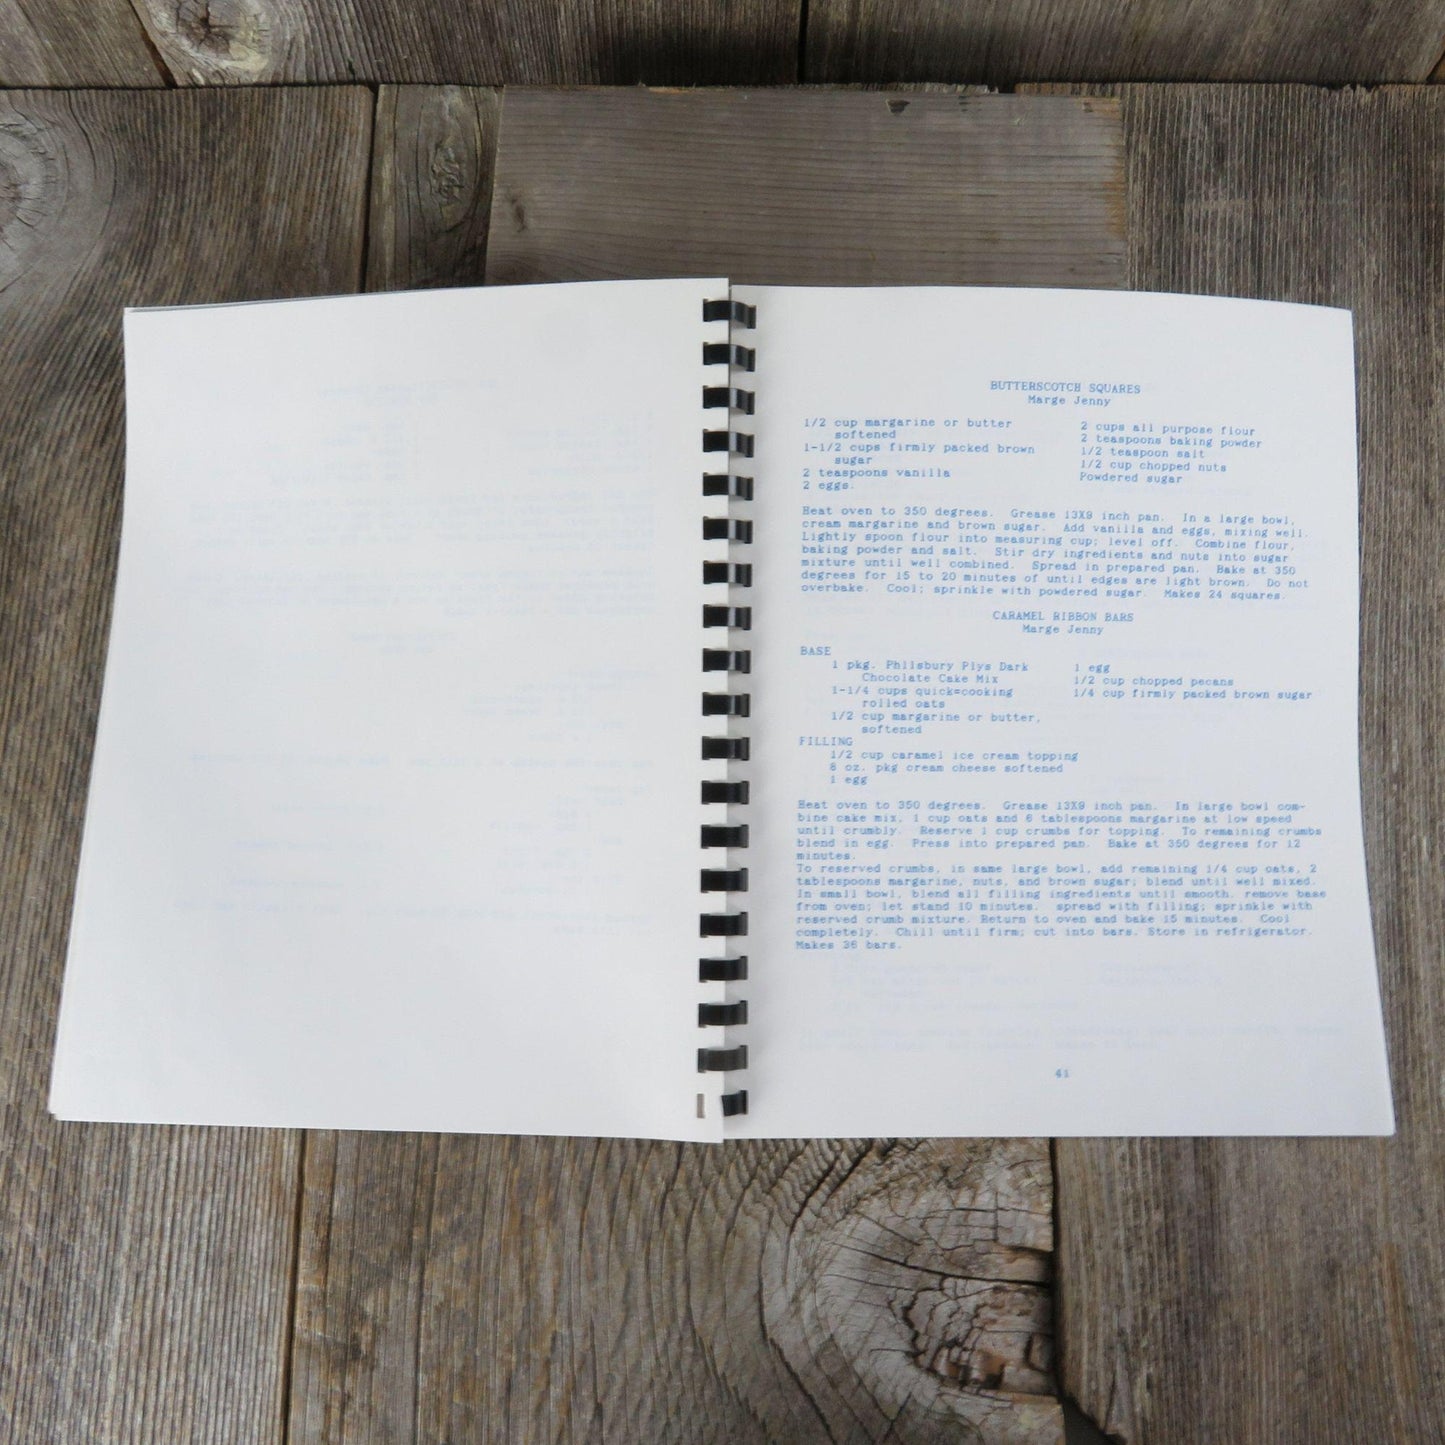 BUTTERSCOTCH SQUARES
Marge Jenny
1/2 cup margarine or butter
softened
1-1/2 cups firmly packed brown
sugar
2 teaspoons vanilla
2 eggs.
2 cups all purpose flour
2 teaspoons baking powder
1/2 teaspoon salt
1/2 cup chopped nuts
Powdered sugar
Heat oven to 350 degrees. Grease 13X9 inch pan. In a large bowl,
cream margarine and brown sugar. Add vanilla and eggs, mixing well.
Lightly spoon flour into measuring cup; level off. Combine flour,
baking powder and salt. Stir dry ingredients and nuts into sugar
mixture until well combined. Spread in prepared pan. Bake at 350
degrees for 15 to 20 minutes of until edges are light brown. Do not
overbake. Cool; sprinkle with powdered sugar. Makes 24 squares.
CARAMEL RIBBON BARS
Marge Jenny
BASE
1 pkg. Phllsbury Plys Dark
Chocolate Cake Mix
1-1/4 cups quick=cooking
rolled oats
1/2 cup margarine or butter,
softened
1 egg
1/2 cup chopped pecans
1/4 cup firmly packed brown sugar
FILLING
1/2 cup caramel ice cream topping
8 oz. pkg cream cheese softened
1 egg
Heat oven to 350 degrees. Grease 13X9 inch pan. In large bowl com-
bine cake mix, 1 cup oats and 6 tablespoons margarine at low speed
until crumbly. Reserve 1 cup crumbs for topping. To remaining crumbs
blend in egg. Press into prepared pan. Bake at 350 degrees for 12
minutes.
To reserved crumbs, in same large bowl, add remaining 1/4 cup oats, 2
tablespoons margarine, nuts, and brown sugar; blend until well mixed.
In small bowl, blend all filling ingredients until smooth. remove base
from oven; let stand 10 minutes. spread with filling; sprinkle with
reserved crumb mixture. Return to oven and bake 15 minutes. Cool
completely. Chill until firm; cut into bars. Store in refrigerator.
Makes 36 bars.
41